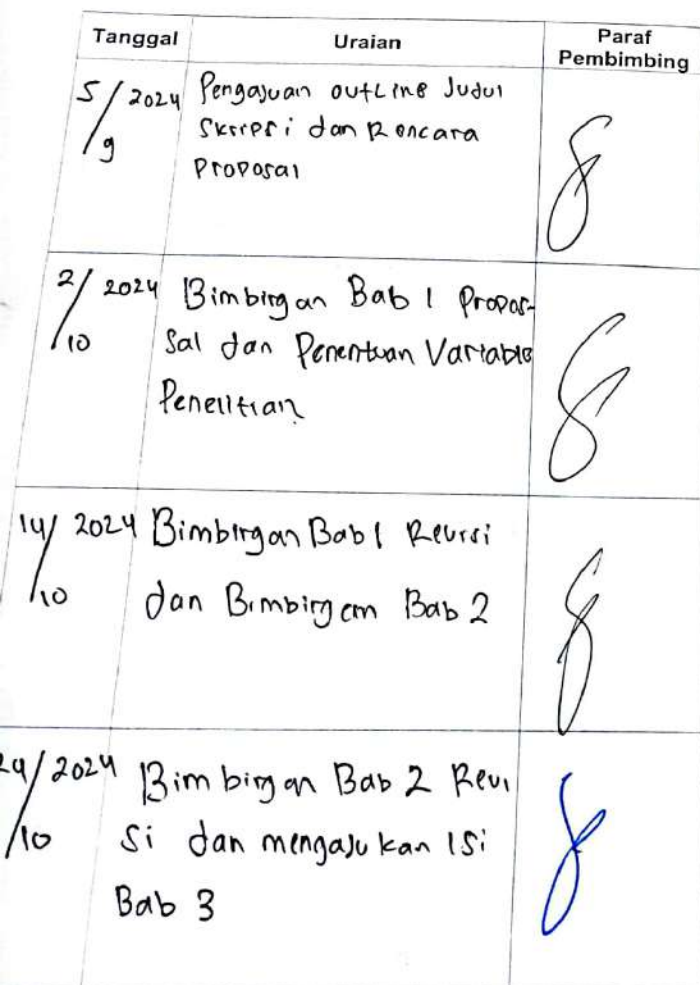 Tanggal Uraian Paraf Pembimbing
5/9 2024 Pengajuan outline Judul
Skripsi dan Rencara
Proposal
2/10 2024 Bimbingan Bab 1 Propo-
sal dan Penentuan Variable
Penelitian
14/10 2024 Bimbingan Bab 1 Revisi
dan Bimbingan Bab 2
24/10 2024 Bimbingan Bab 2 Revi
si dan mengajukan isi
Bab 3